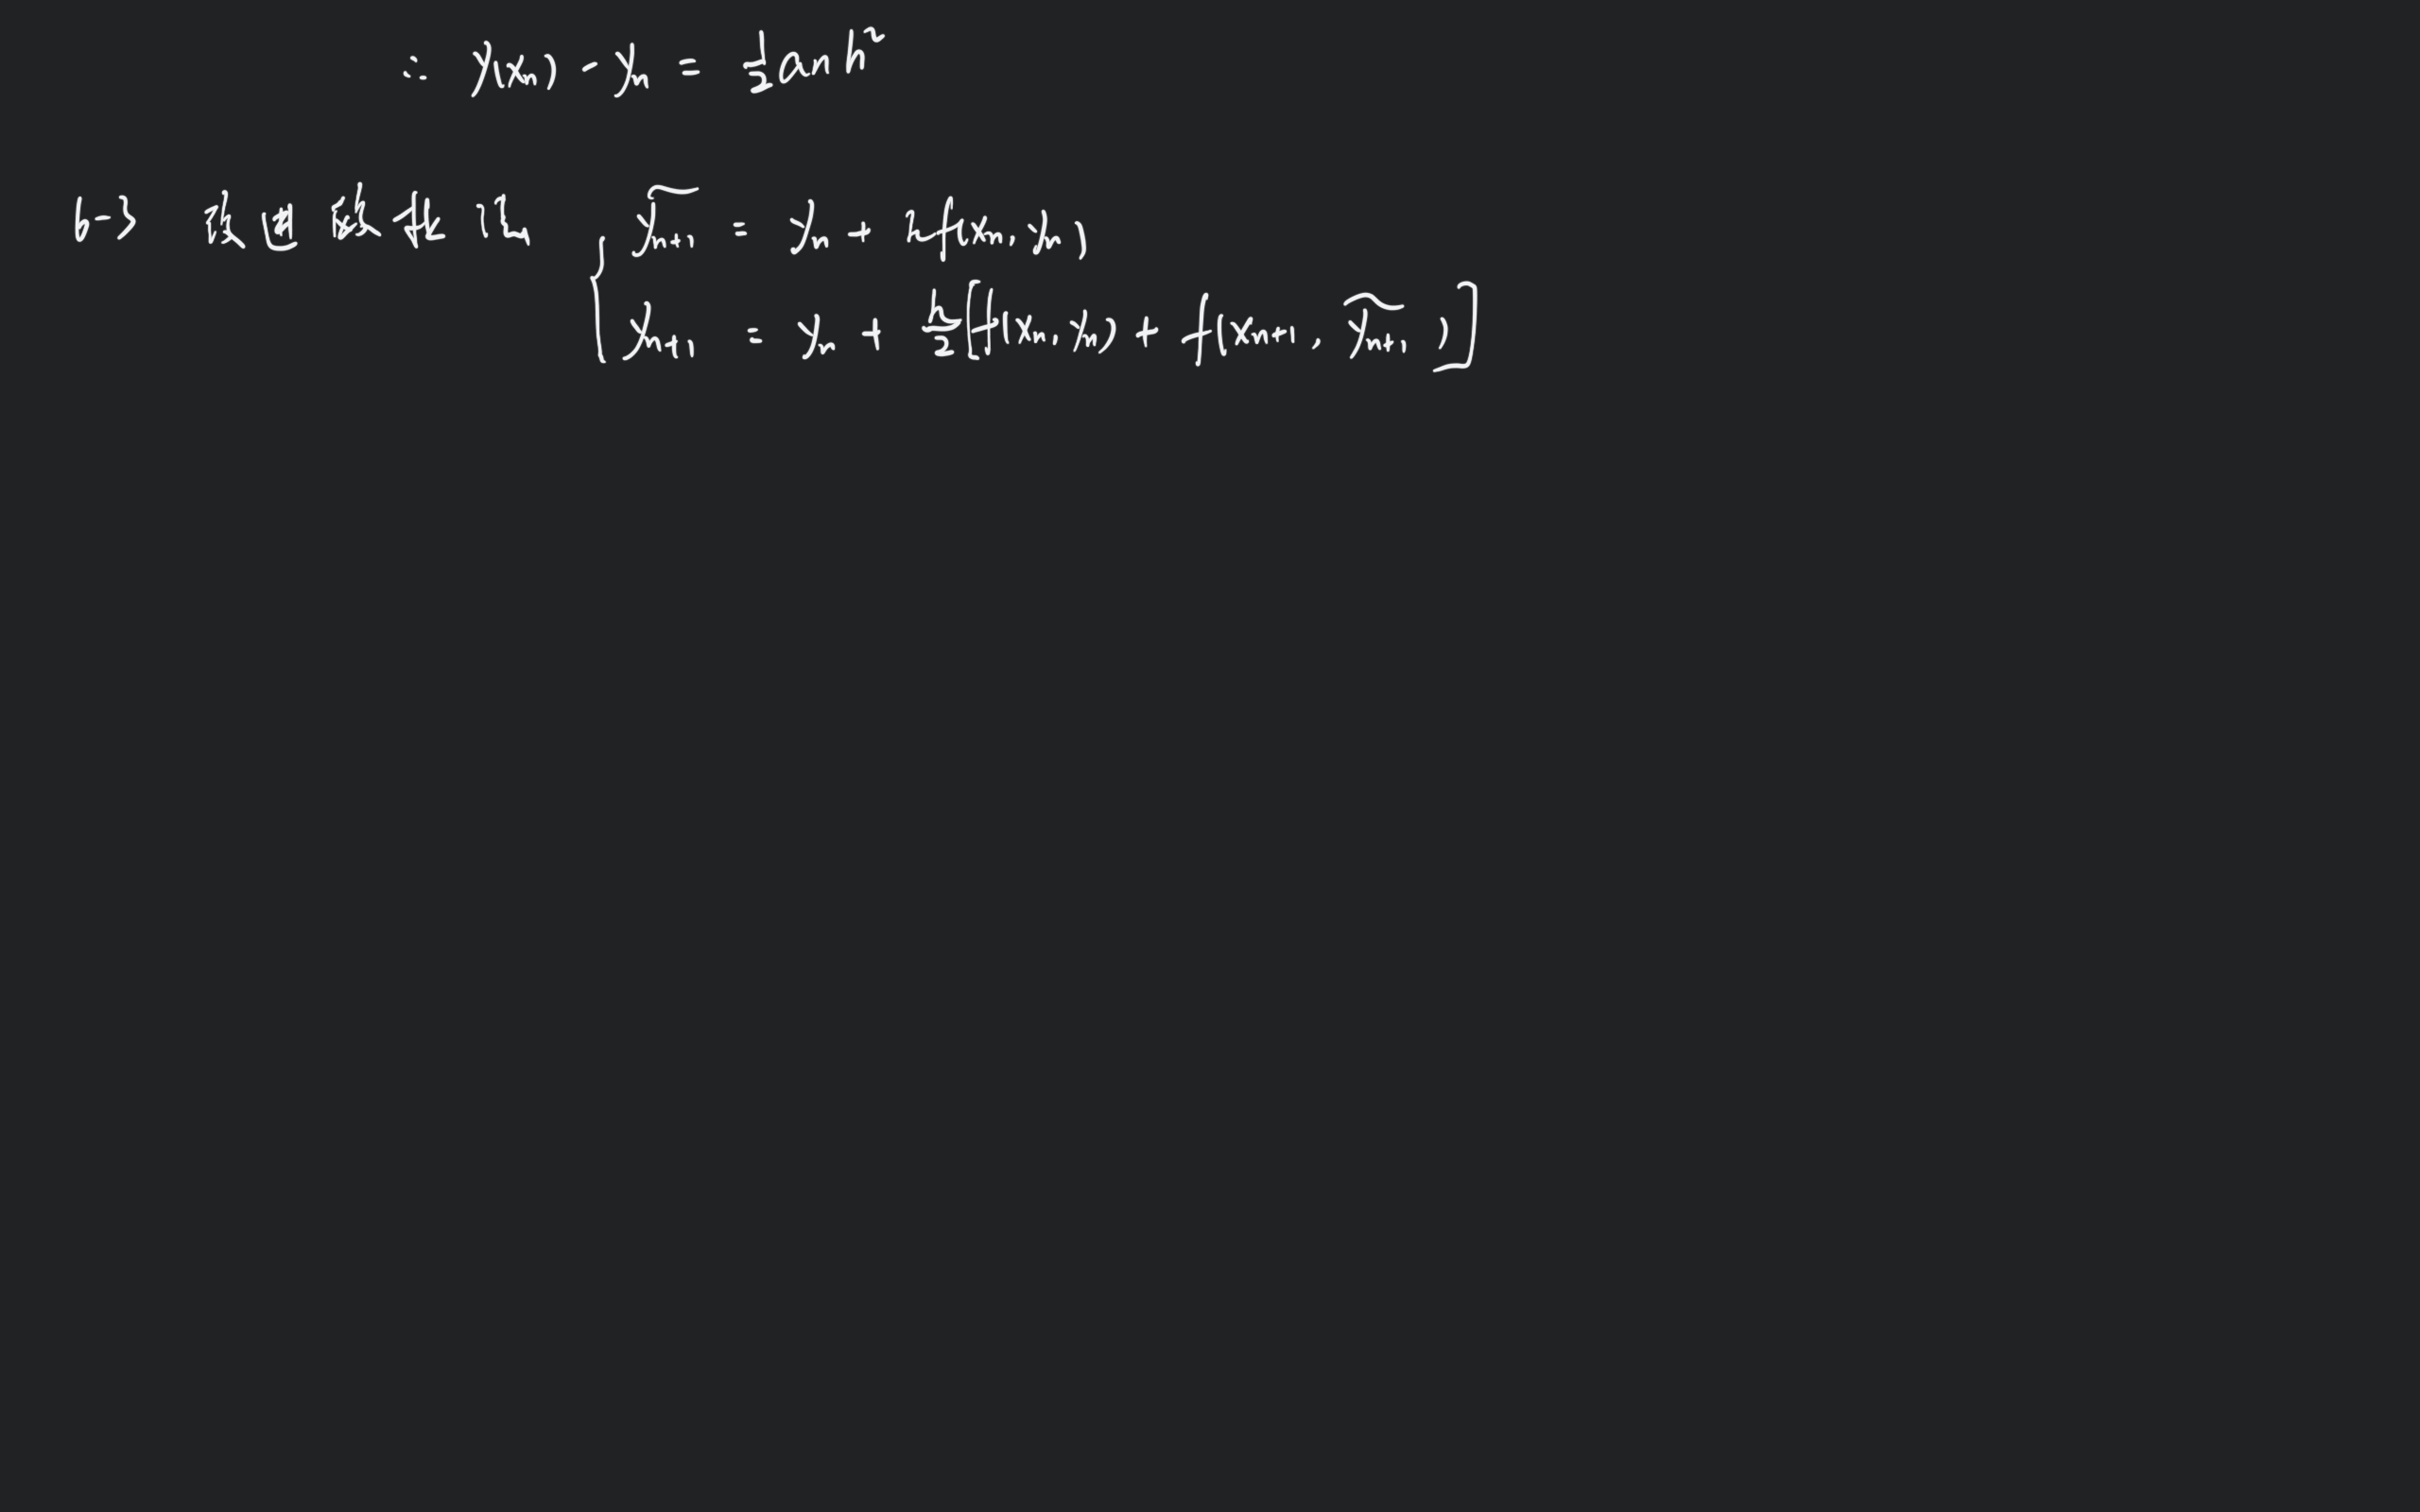 ∴ y(xₙ) - yₙ = ½anh²
6-3 改进欧拉法 { ỹₙ₊₁ = yₙ + hf(xₙ, yₙ)
yₙ₊₁ = yₙ + h/2[f(xₙ, yₙ) + f(xₙ₊₁, ỹₙ₊₁)]